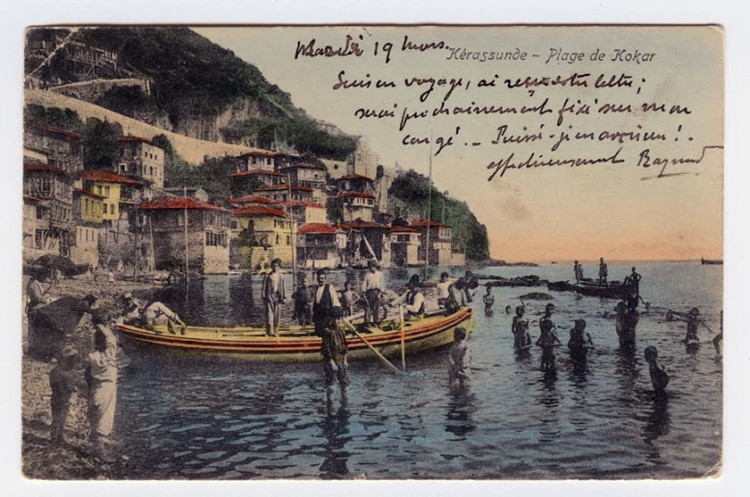 Mardi 19 Mars.
Kérassunde – Plage de Kokar
Suis en voyage, ai reçu votre lettre;
serai prochainement fixé sur mon
congé. – Puissé-je en avoir un! –
affectueusement